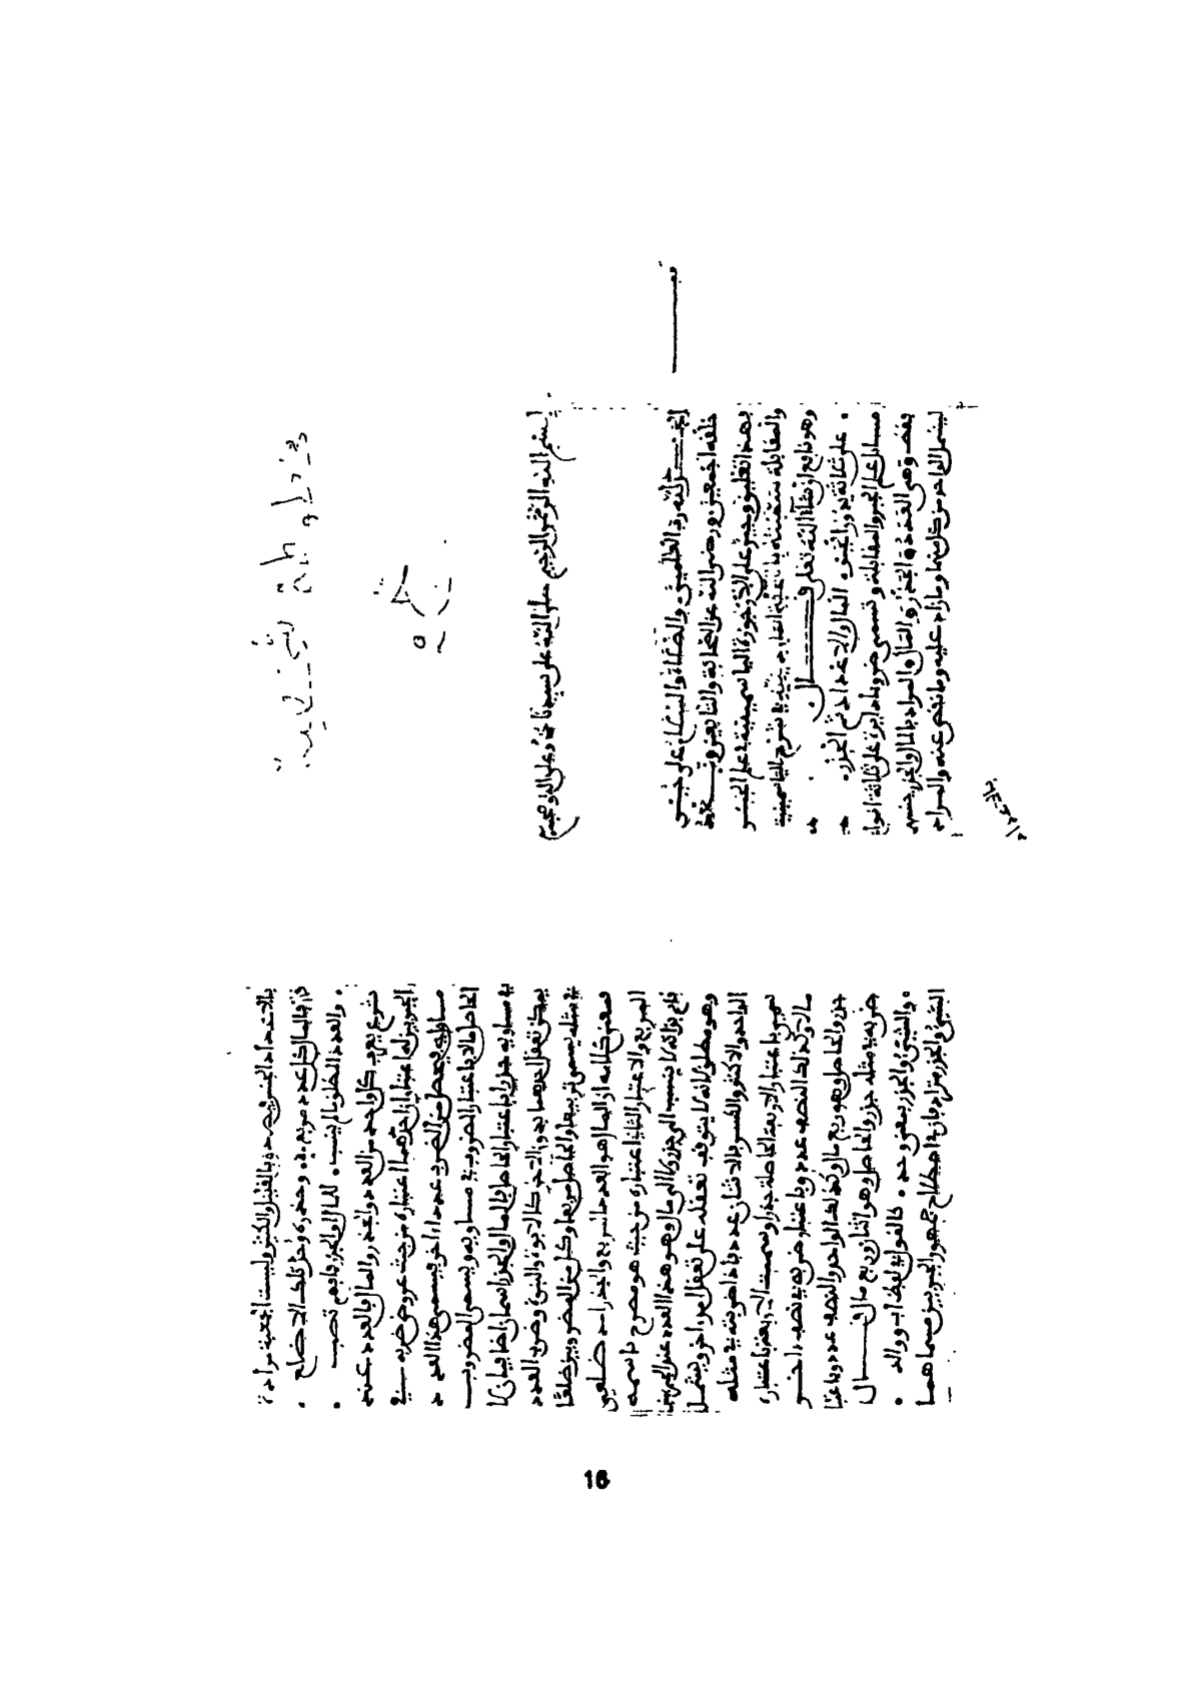 بسم الله الرحمن الرحيم صلى الله على سيدنا محمد وعلى اله وصحبه
الحمد لله رب العلمين والصلاة والسلام على خير
خلقه اجمعين ورضي الله عن الصحابة والتابعين وبعد
فهذا تعليق وجيز على الارجوزة الياسمينية في علم الجبر
والمقابلة في شرح الياسمينية
وهو نافع ان شاء الله تعلى قال
على ثلاثة يدور الجبر المال والاعداد ثم الجذر
مسايل علم الجبر والمقابلة وتسمى ضروبا دايرة على ثلاثة انواع
فقط وهي العدد والجذر والمال والمراد بالمال والجذر جنسه
ليشمل الواحد من كل منهما وما زاد عليه وما نقص عنه والمراد
بالاعداد الجنس فيصدق بالقليل والكثير وليست الجمعية مرادة
فالمال كل عدد مربع وجذره واحد تلك الاضلع
والعدد المطلق ما لم ينسب للمال او للجذر فافهم تصب
شرع يعرف كل واحد من العدد والجذر والمال فالعدد عند
الجبريين له اعتباران احدهما اعتباره من حيث عروض ضربه في
مساويه فيحصل من الضرب عدد اخر فيسمى هذا العدد
الحاصل مالا باعتبار المضروب في مساويه ويسمى المضروب
في مساويه جذرا باعتبار الحاصل فالمال والجذر اسمان اضافيان لا
يمكن تعقل احدهما بدون الاخر كالابوة والبنوة وضرب العدد
في مثله يسمى تربيعا والحاصل مربعا وكل من المضروبين ضلعا
فمعنى كلامه ان المال هو العدد المربع والجذر احد ضلعي
المربع والاعتبار الثاني اعتباره من حيث هو مصرح باسمه
فانه لا ينسب الى جذر ولا الى مال وهو هذا العدد عند الجبريين
وهو مطلق لانه لا يتوقف تعقله على تعقل امر اخر ويشمل
الواحد والاكثر والكسر فالاثنان عدد فاذا ضربته في مثله
سمي باعتبار الاربعة الحاصلة جذرا وسميت الاربعة باعتباره
مالا وكذلك النصف عدد وباعتبار ضربه في نصف اخر
جذر والحاصل وهو ربع مال وكذلك الواحد والنصف عدد وباعتبار
ضربه في مثله جذر والحاصل وهو اثنان وربع مال قال
والشيء والجذر بمعنى واحد كالقول في لفظ اب ووالد
الشيء والجذر مترادفان في اصطلاح جمهور الجبريين مسماهما
16